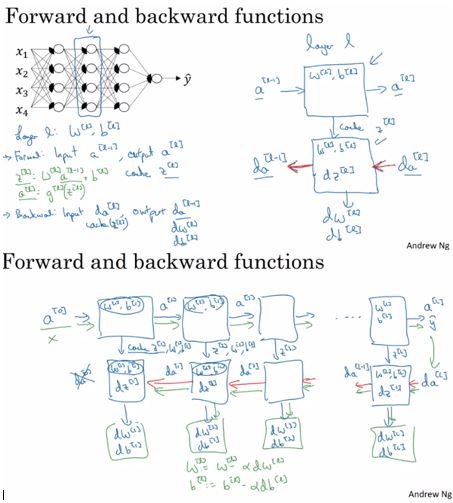 Forward and backward functions
x₁
x₂
x₃
x₄
ŷ
Layer l: W^[l], b^[l]
→ Forward: Input a^[l-1], output a^[l]
z^[l] = W^[l] a^[l-1] + b^[l]
cache z^[l]
a^[l] = g^[l](z^[l])
→ Backward: Input da^[l], output da^[l-1]
cache(z^[l])
dW^[l]
db^[l]
layer l
a^[l-1]
W^[l], b^[l]
a^[l]
cache z^[l]
da^[l-1]
W^[l], b^[l]
dz^[l]
da^[l]
dW^[l]
db^[l]
Andrew Ng
Forward and backward functions
a^[0]
x
W^[1], b^[1]
a^[1]
W^[2], b^[2]
a^[2]
....
W^[L]
b^[L]
a^[L]
ŷ
cache z^[1]
z^[2]
z^[L]
da^[0]
W^[1], b^[1]
dz^[1]
da^[1]
W^[2], b^[2]
dz^[2]
da^[2]
W^[L], b^[L]
dz^[L]
da^[L]
dW^[1]
db^[1]
dW^[2]
db^[2]
dW^[3]
db^[3]
dW^[L]
db^[L]
W^[l] := W^[l] - αdW^[l]
b^[l] := b^[l] - αdb^[l]
Andrew Ng